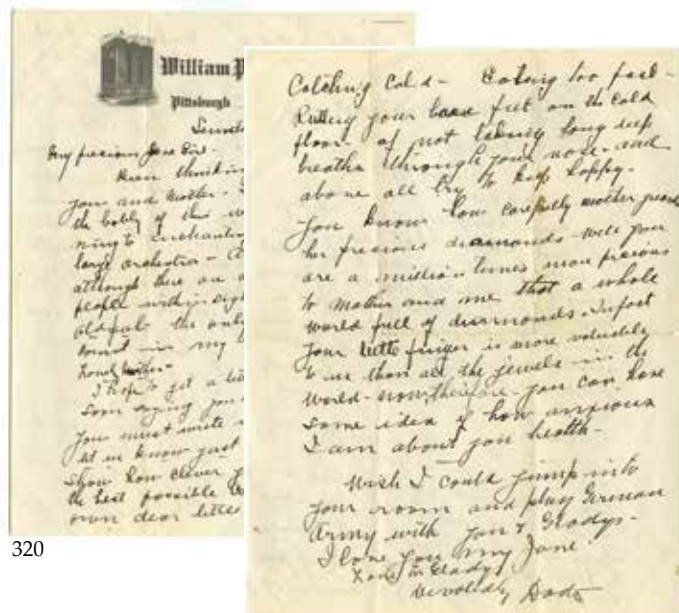 William P
Pittsburgh
My precious Jane Girl -
Been thinking
you and Mother -
the lobby of this
ning to enchanting
large orchestra - A
although there are
people within sight
the only
in my
I hope to get a
saying you
You must write
let me know just
show how clever
the best possible
own dear little
Catching Cold - Eating too fast -
Putting your bare feet on the cold
floor - of not taking long deep
breaths through your nose - and
above all try to keep happy.
You know how carefully mother guards
her precious diamonds - well you
are a million times more precious
to Mother and me that a whole
world full of diamonds. In fact
your little finger is more valuable
to us than all the jewels in the
world - now, therefore - you can have
some idea of how anxious
I am about you health -
Wish I could jump into
your room and play German
Army with you & Gladys -
I love you my Jane
Gladys
Devotedly Dad
320